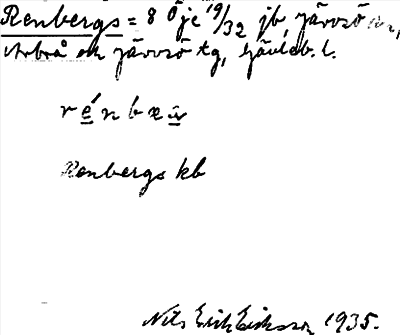 Renbergs = 8 Öje 19/32 jb, Järvsö sn,
Arbrå och Järvsö tg, Gävleb. l.
rénbæʀ
Renbergs kb
Nils Erik Eriksson 1935.